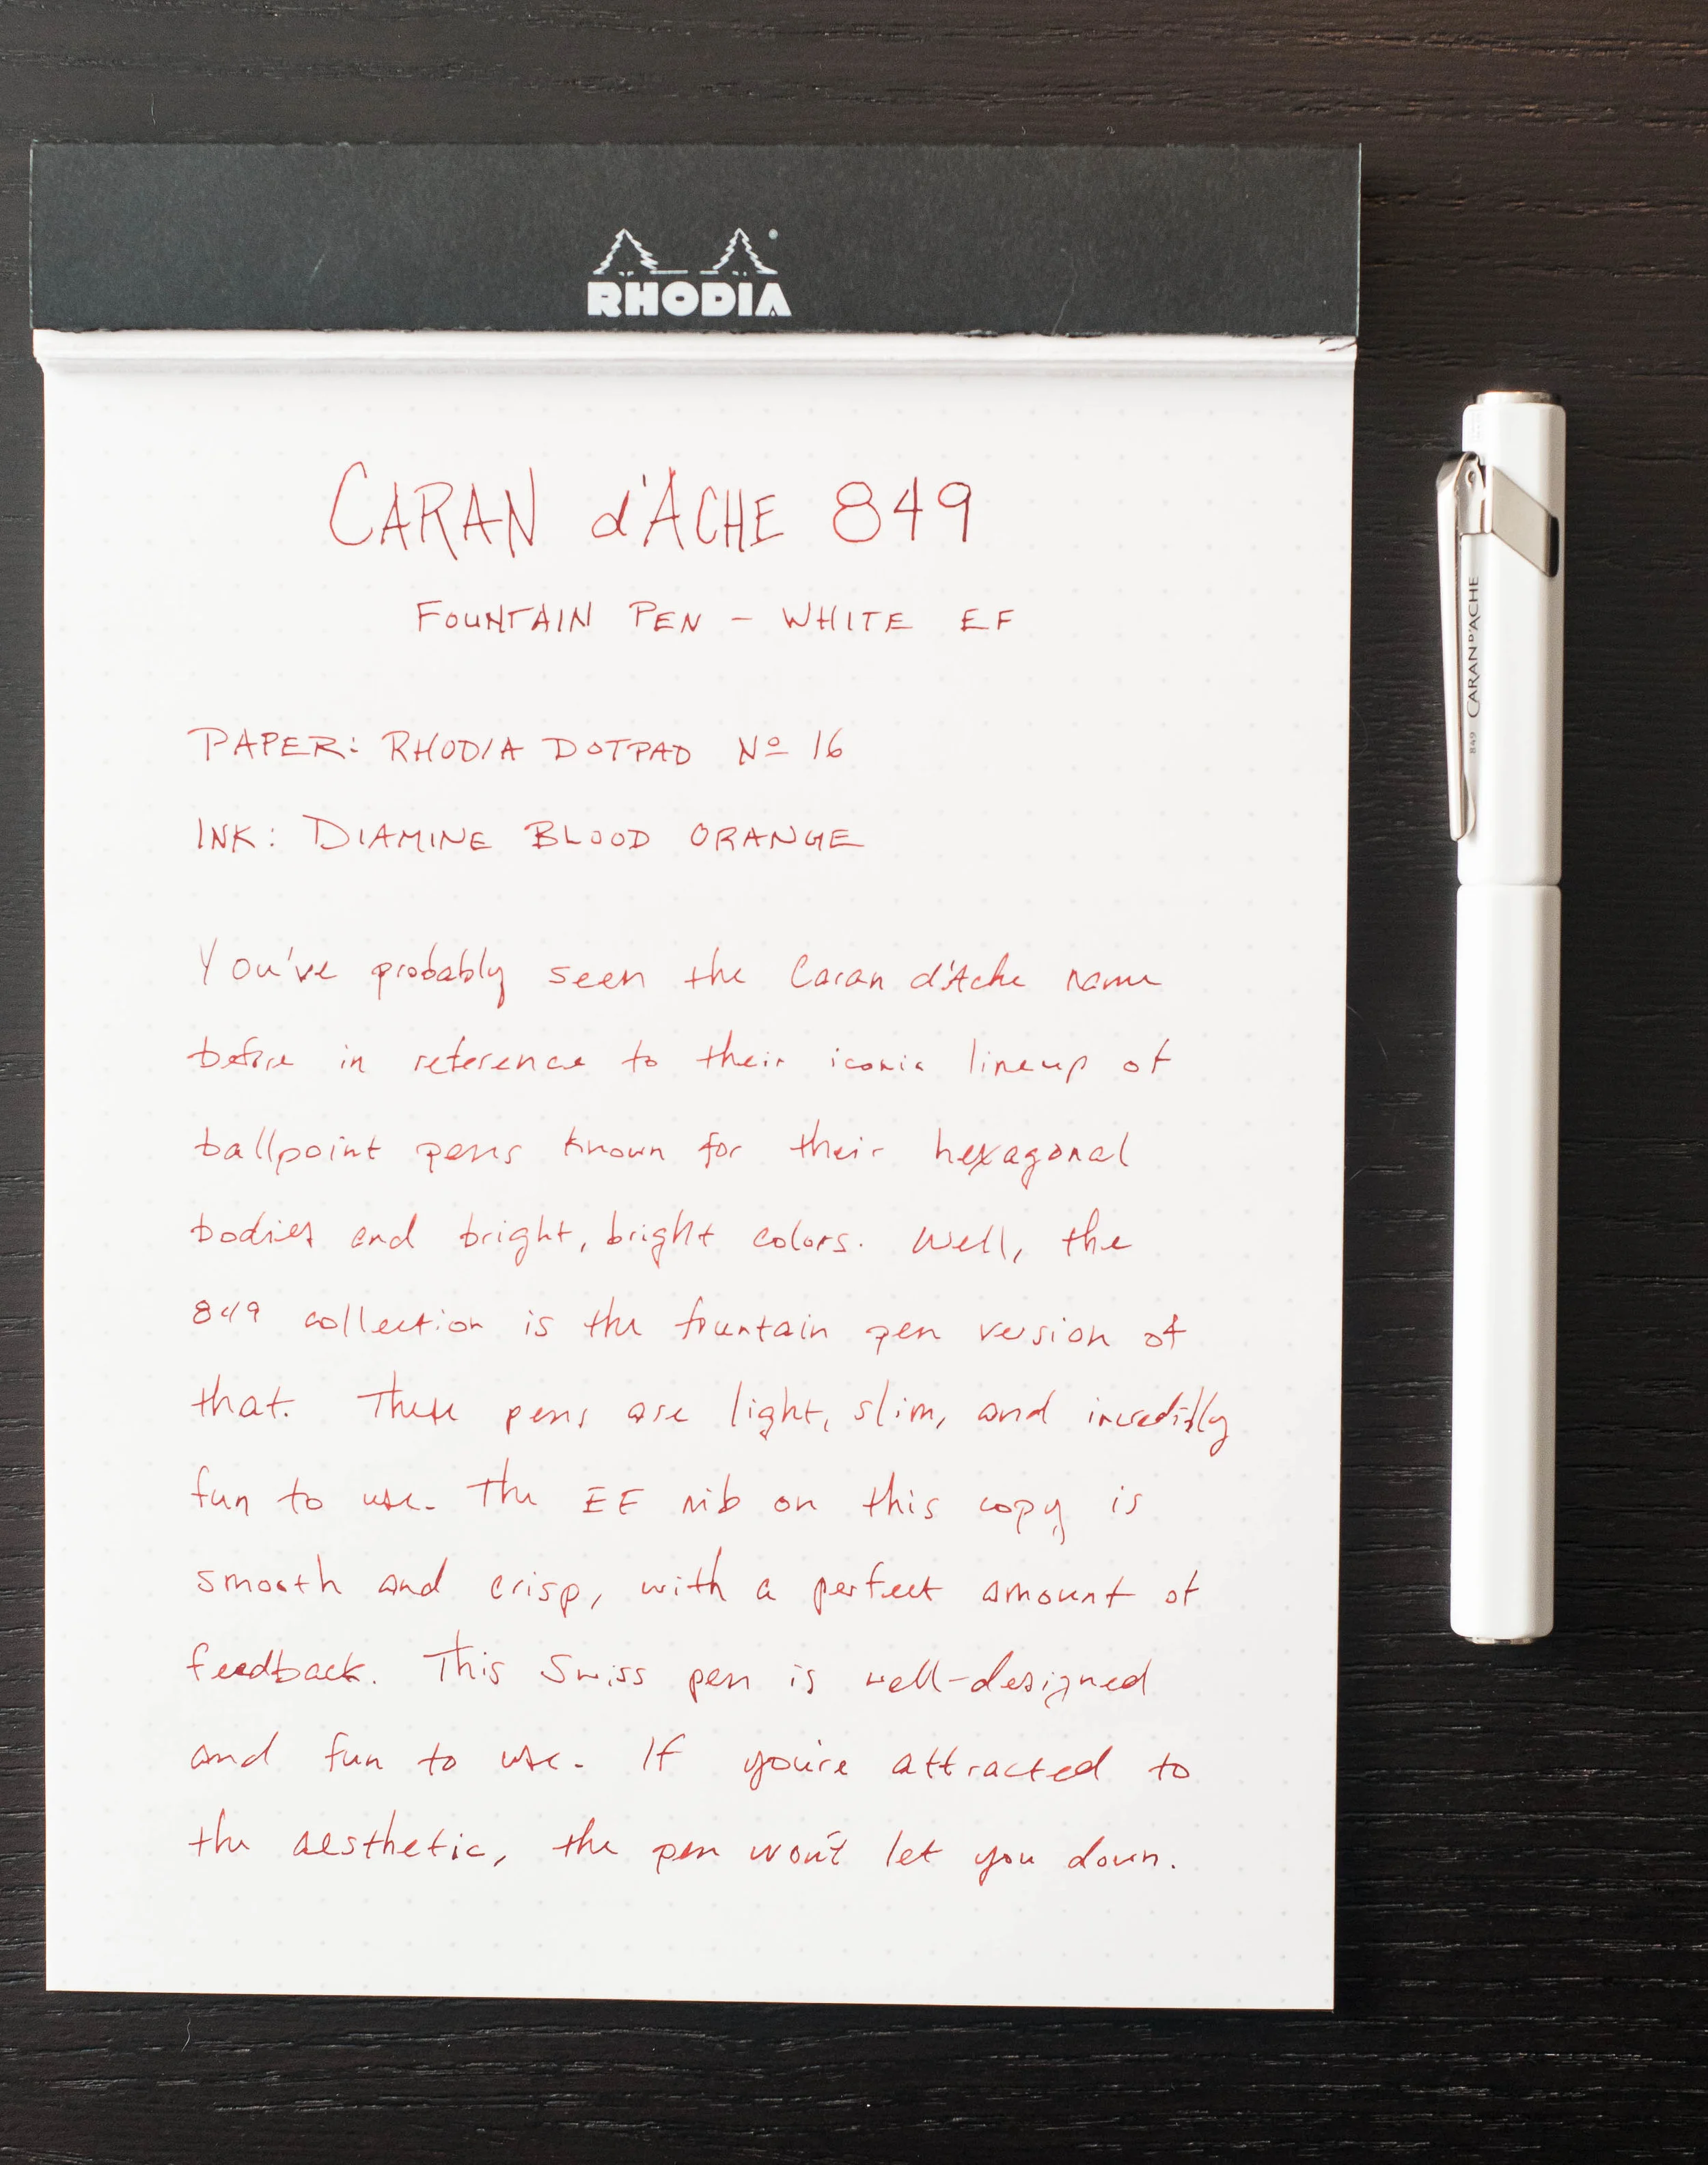 RHODIA
CARAN d'ACHE 849
FOUNTAIN PEN – WHITE EF
PAPER: RHODIA DOTPAD Nº 16
INK: DIAMINE BLOOD ORANGE
You've probably seen the Caran d'Ache name
before in reference to their iconic lineup of
ballpoint pens known for their hexagonal
bodies and bright, bright colors. Well, the
849 collection is the fountain pen version of
that. These pens are light, slim, and incredibly
fun to use. The EF nib on this copy is
smooth and crisp, with a perfect amount of
feedback. This Swiss pen is well-designed
and fun to use. If you're attracted to
the aesthetic, the pen won't let you down.
849 CARAN D'ACHE